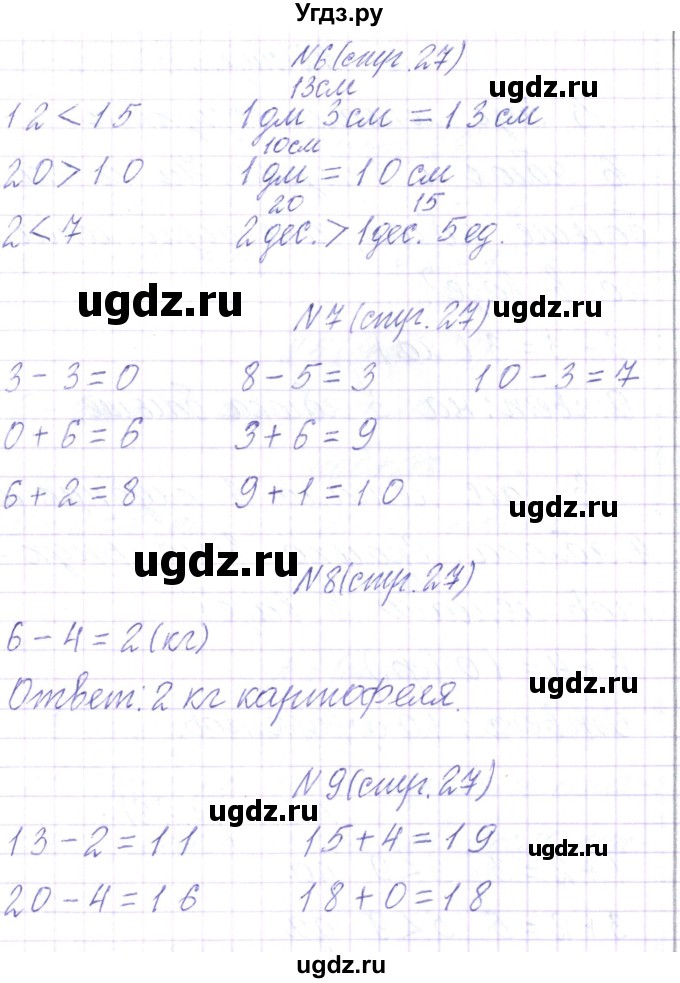 Угдз.ру
N6(стр.27)
ugdz.ru
13см
12<15 1дм 3см = 13см
10см
20>10 1дм = 10см
20 15
2<7 2дес.>1дес. 5ед.
ugdz.ru
N7(стр.27)
ugdz.ru
3-3=0 8-5=3 10-3=7
0+6=6 3+6=9
6+2=8 9+1=10
ugdz.ru
ugdz.ru
N8(стр.27)
6-4=2(кг)
Ответ: 2 кг картофеля.
ugdz.ru
N9(стр.27)
ugdz.ru
13-2=11 15+4=19
ugdz.ru
20-4=16 18+0=18
ugdz.ru